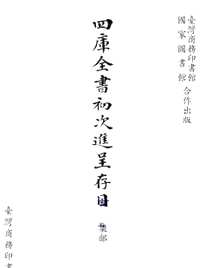 臺灣商務印書館
國家圖書館
合作出版
四庫全書初次進呈存目
集部
臺灣商務印書